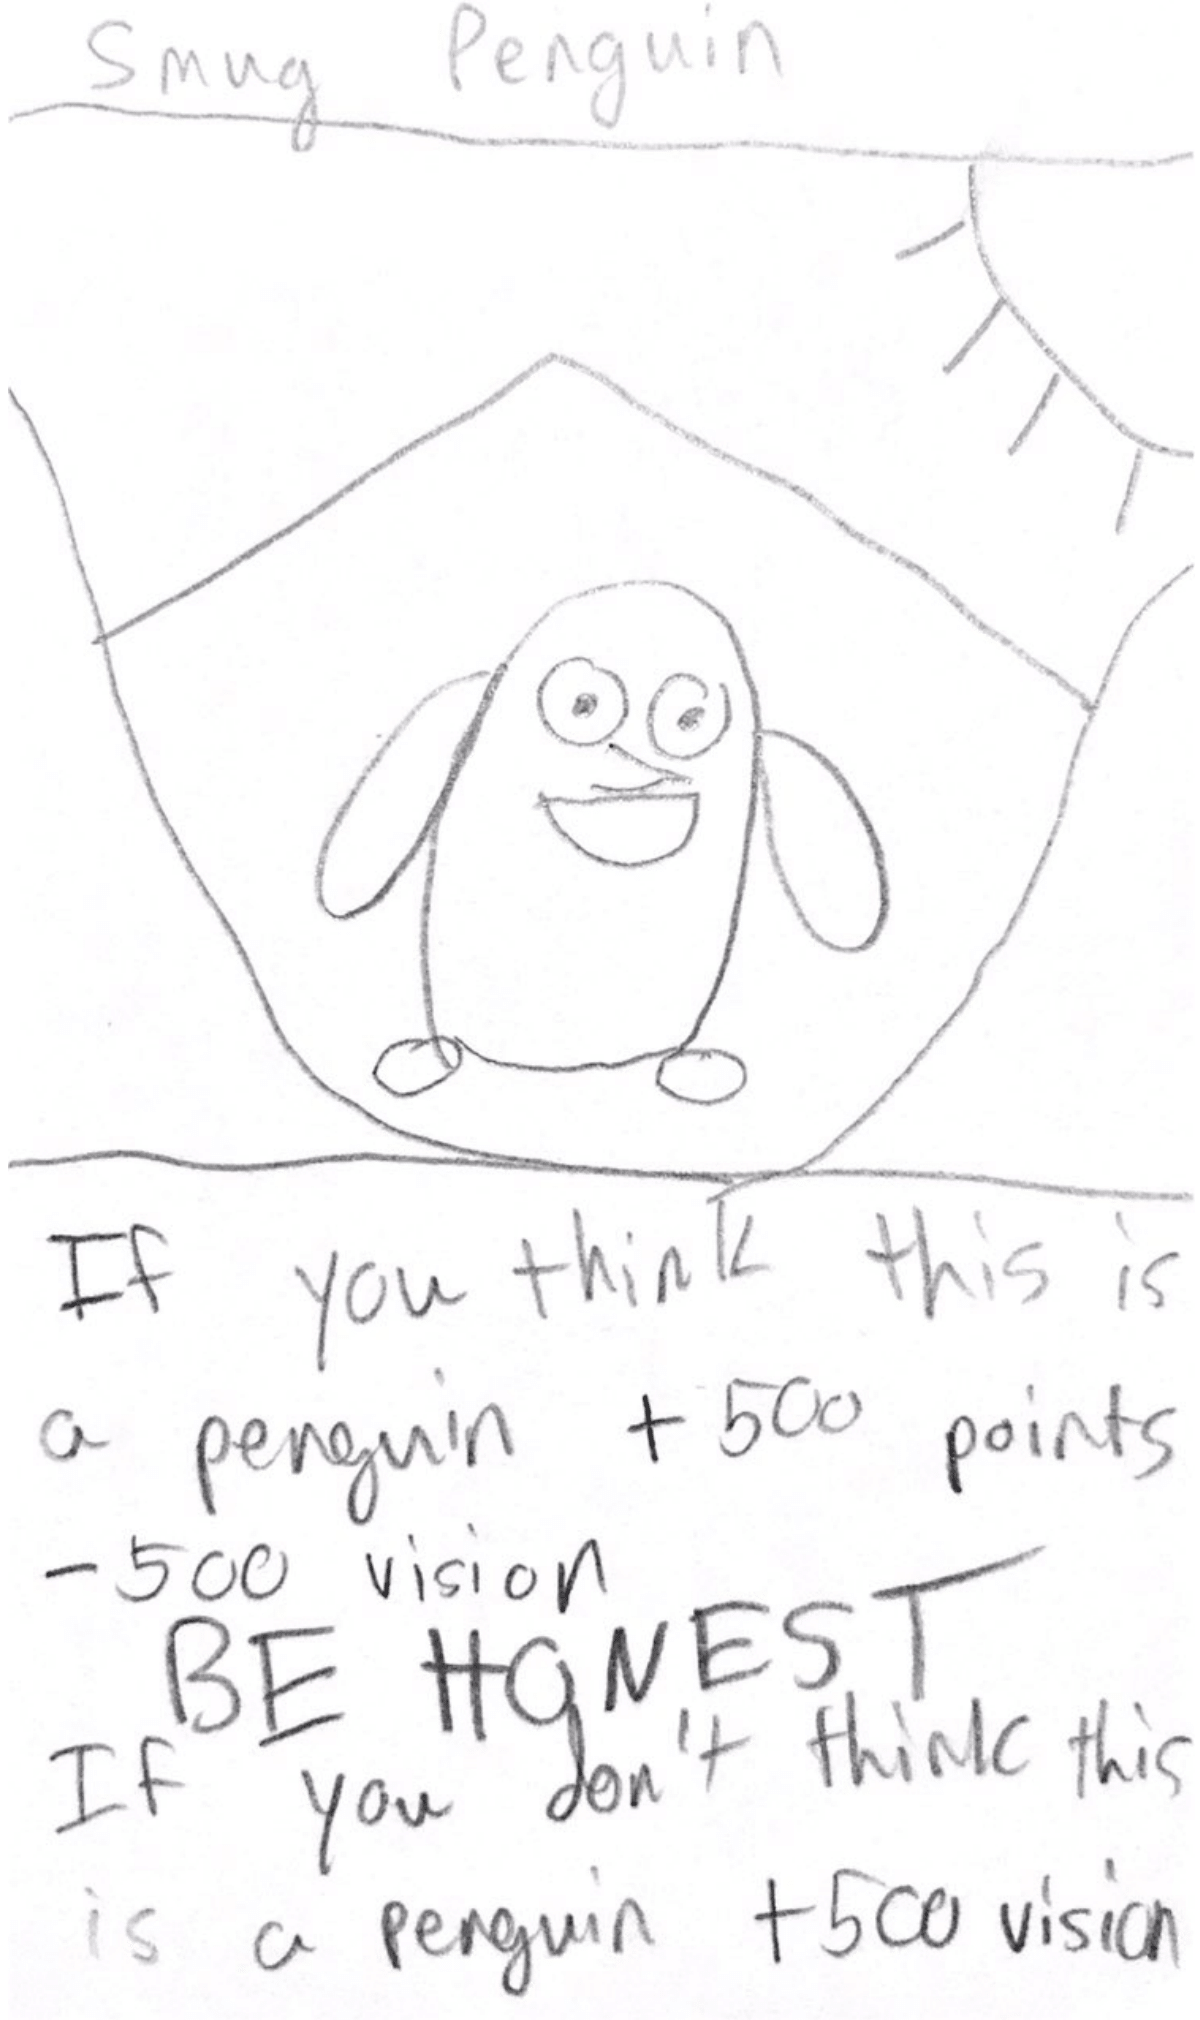 Smug Penguin
If you think this is
a penguin +500 points
-500 vision
BE HONEST
If you don't think this
is a penguin +500 vision